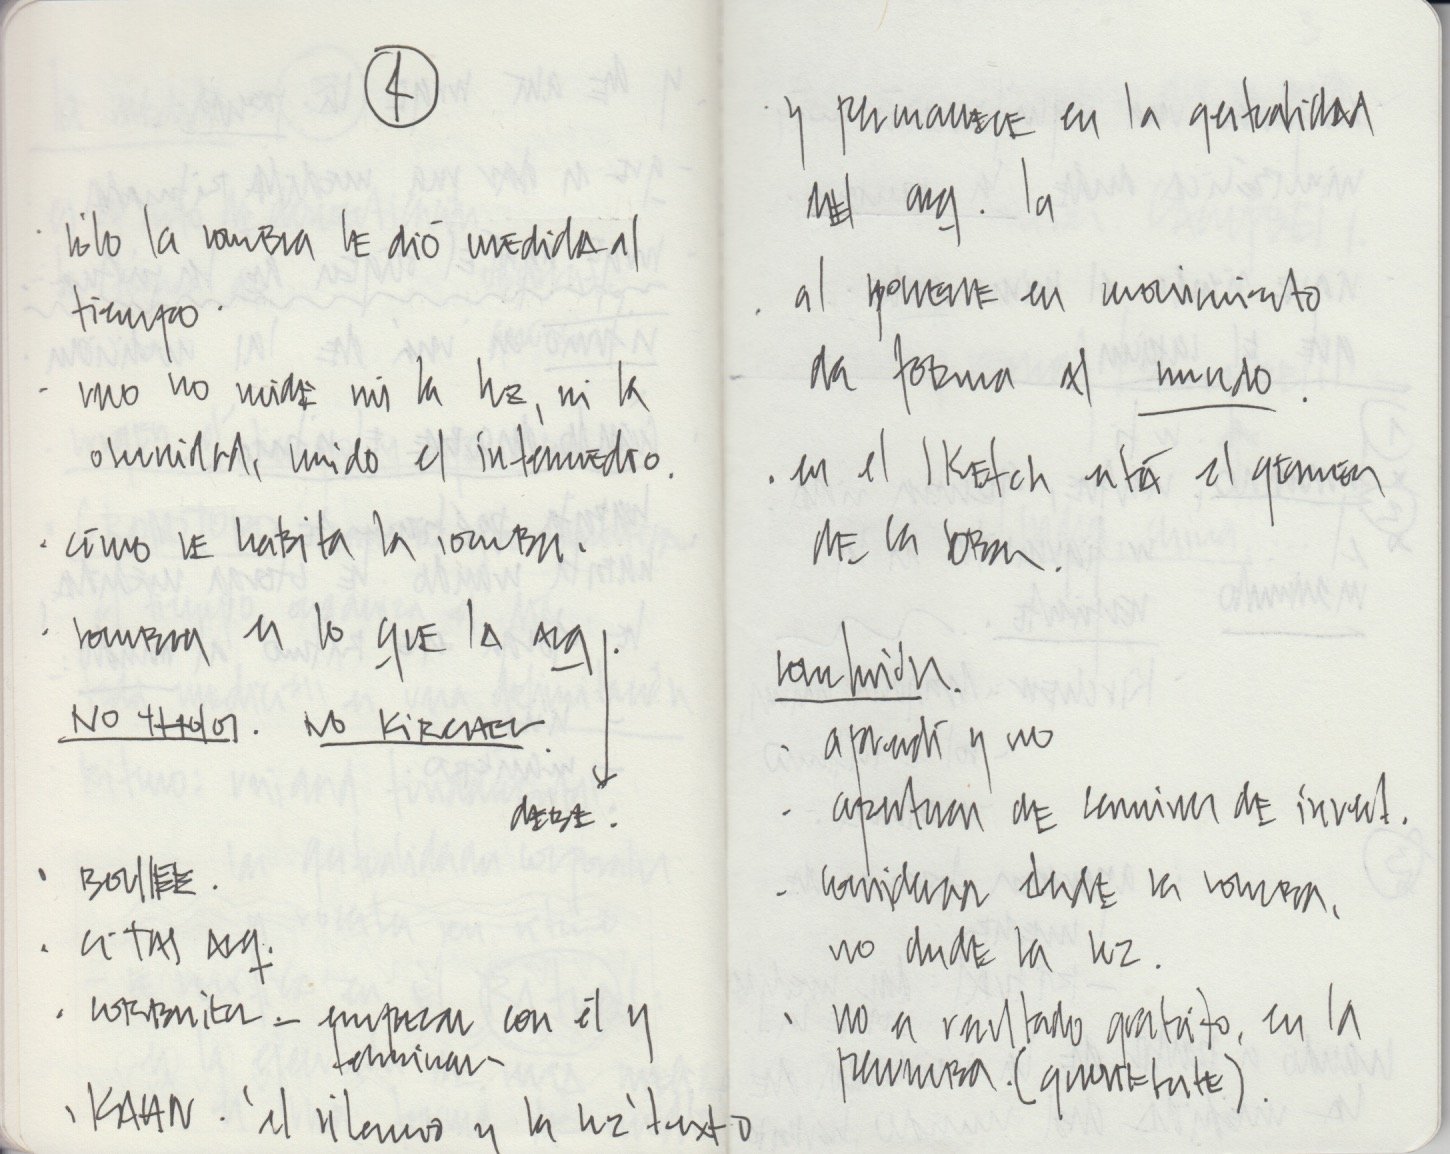 4
· sólo la sombra le dió medida al
tiempo.
- uno no mide ni la luz, ni la
oscuridad, mido el intermedio.
· cómo se habita la sombra.
· sombra es lo que la arq.
NO
NO KIRCHAER.
debe.
· BOULLEE.
· CITAS ARQ.
· CORBusier – empezar con él y
terminar
· KAHAN. 'el silencio y la luz' texto
· y permanece en la gestualidad
del arq. la
· al ponerse en movimiento
da forma al mundo.
· en el SKetch está el germen
DE la OBRA.
conclusión.
· aprendí y no
- apertura de caminos de invest.
- considerar desde la sombra,
no desde la luz.
· no a resultado gratuito, en la
penumbra. ( )